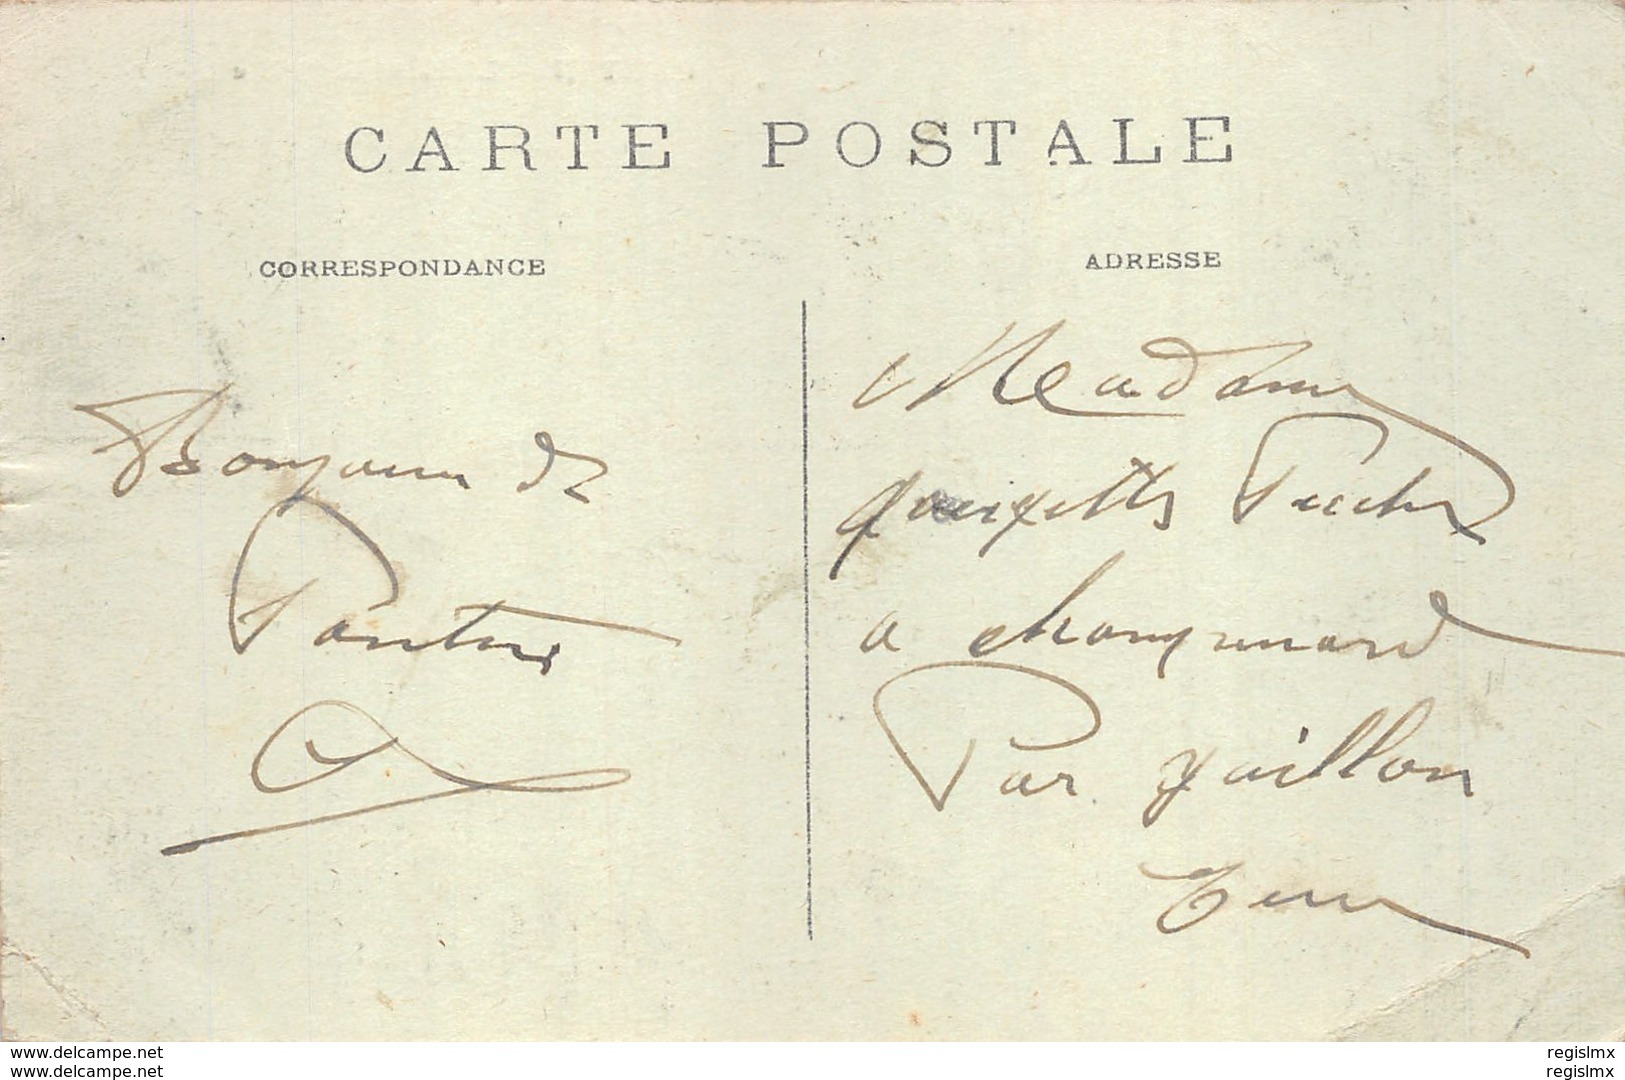 CARTE POSTALE
CORRESPONDANCE
ADRESSE
Bonjour de
Pantin
Madame
à
Par Gaillon
Eure
www.delcampe.net
regislmx
www.delcampe.net
regislmx